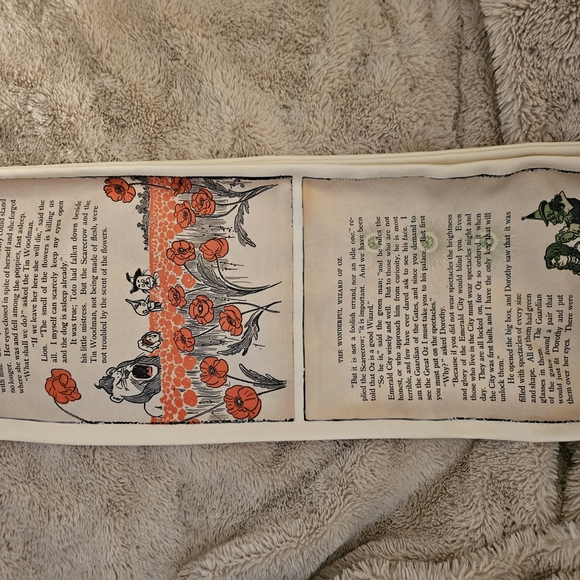 no longer. Her eyes closed in spite of herself and she forgot
where she was and fell among the poppies, fast asleep.
"What shall we do?" asked the Tin Woodman.
"If we leave her here she will die," said the
Lion. "The smell of the flowers is killing us
all. I myself can scarcely keep my eyes open
and the dog is asleep already."
It was true; Toto had fallen down beside
his little mistress. But the Scarecrow and the
Tin Woodman, not being made of flesh, were
not troubled by the scent of the flowers.
THE WONDERFUL WIZARD OF OZ.
"But it is not a foolish errand, nor an idle one," re-
plied the Scarecrow; "it is important. And we have been
told that Oz is a good Wizard."
"So he is," said the green man; "and he rules the
Emerald City wisely and well. But to those who are not
honest, or who approach him from curiosity, he is most
terrible, and few have ever dared ask to see his face. I
am the Guardian of the Gates, and since you demand to
see the Great Oz I must take you to his palace. But first
you must put on the spectacles."
"Why?" asked Dorothy.
"Because if you did not wear spectacles the brightness
and glory of the Emerald City would blind you. Even
those who live in the City must wear spectacles night and
day. They are all locked on, for Oz so ordered it when
the City was first built, and I have the only key that will
unlock them."
He opened the big box, and Dorothy saw that it was
filled with spectacles of every size
and shape. All of them had green
glasses in them. The Guardian
of the gates found a pair that
would just fit Dorothy and put
them over her eyes. There were